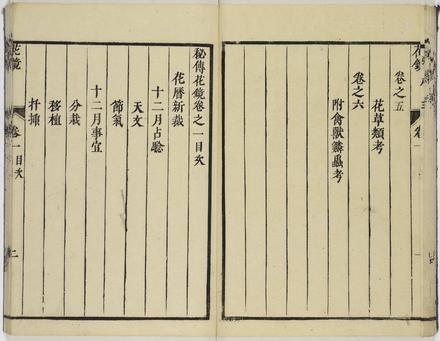 卷之五
花草類考
卷之六
附禽獸鱗蟲考
秘傳花鏡卷之一目次
花曆新裁
十二月占驗
天文
節氣
十二月事宜
分栽
移植
扦揷
花鏡
卷一目次
二